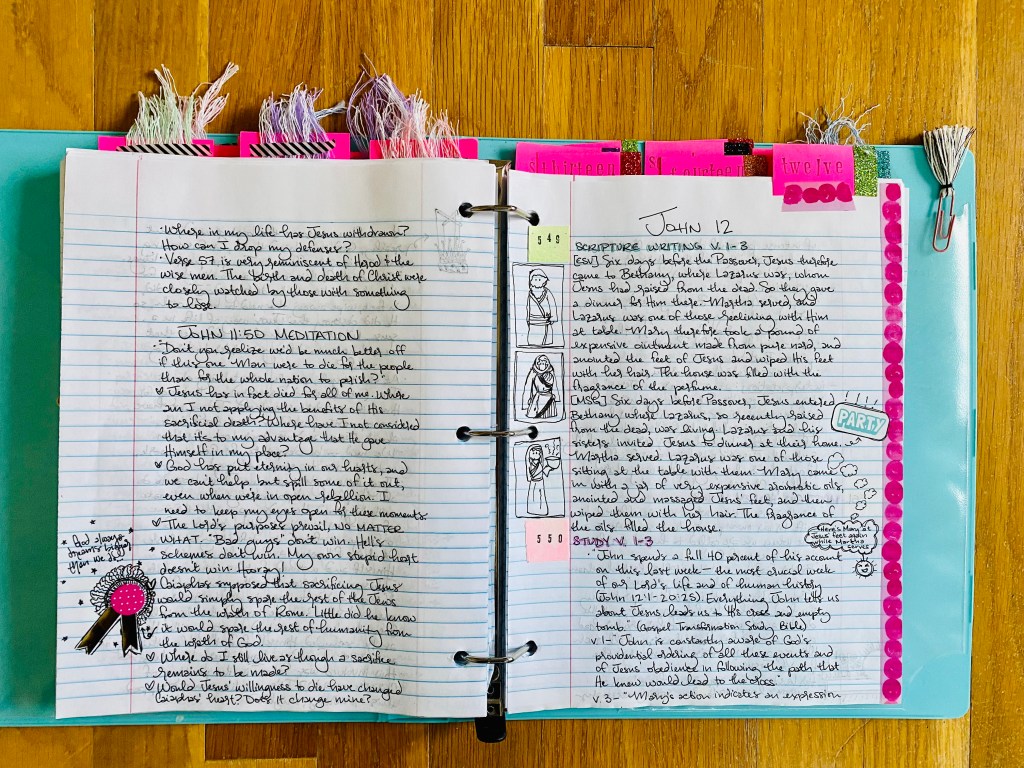 • Where in my life has Jesus withdrawn?
How can I drop my defenses?
• Verse 57 is very reminiscent of Herod & the
wise men. The birth and death of Christ were
closely watched by those with something
to lose.
JOHN 11:50 MEDITATION
• "Don't you realize we'd be much better off
if this one Man were to die for the people
than for the whole nation to perish?"
Jesus has in fact died for all of me. Where
am I not applying the benefits of His
sacrificial death? Where have I not considered
that it's to my advantage that He gave
Himself in my place?
God has put eternity in our hearts, and
we can't help but spill some of it out,
even when we're in open rebellion. I
need to keep my eyes open for these moments.
The Lord's purposes prevail, NO MATTER
WHAT. "Bad guys" don't win. Hell's
schemes don't win. My own stupid heart
doesn't win. Hooray!
Caiaphas supposed that sacrificing Jesus
would simply spare the rest of the Jews
from the wrath of Rome. Little did he know
it would spare the rest of humanity from
the wrath of God.
Where do I still live as though a sacrifice
remains to be made?
Would Jesus' willingness to die have changed
Caiaphas' heart? Does it change mine?
God always
dreams bigger
than we do
twelve
JOHN 12
549
SCRIPTURE WRITING V. 1-3
[ESV] Six days before the Passover, Jesus therefore
came to Bethany, where Lazarus was, whom
Jesus had raised from the dead. So they gave
a dinner for Him there. Martha served, and
Lazarus was one of those reclining with Him
at table. Mary therefore took a pound of
expensive ointment made from pure nard, and
anointed the feet of Jesus and wiped His feet
with her hair. The house was filled with the
fragrance of the perfume.
[MSG] Six days before Passover, Jesus entered
Bethany where Lazarus, so recently raised
from the dead, was living. Lazarus and his
sisters invited Jesus to dinner at their home.
Martha served. Lazarus was one of those
sitting at the table with them. Mary came
in with a jar of very expensive aromatic oils,
anointed and massaged Jesus' feet, and then
wiped them with her hair. The fragrance of
the oils filled the house.
PARTY
Here's Mary at
Jesus' feet again
while Martha
serves
550
STUDY V. 1-3
"John spends a full 40 percent of his account
on this last week — the most crucial week
of our Lord's life and of human history
(John 12:1-20:25). Everything John tells us
about Jesus leads us to His cross and empty
tomb." (Gospel Transformation Study Bible)
v. 1 - "John is constantly aware of God's
providential ordering of all these events and
of Jesus' obedience in following the path that
He knew would lead to the cross."
v. 3 - "Mary's action indicates an expression